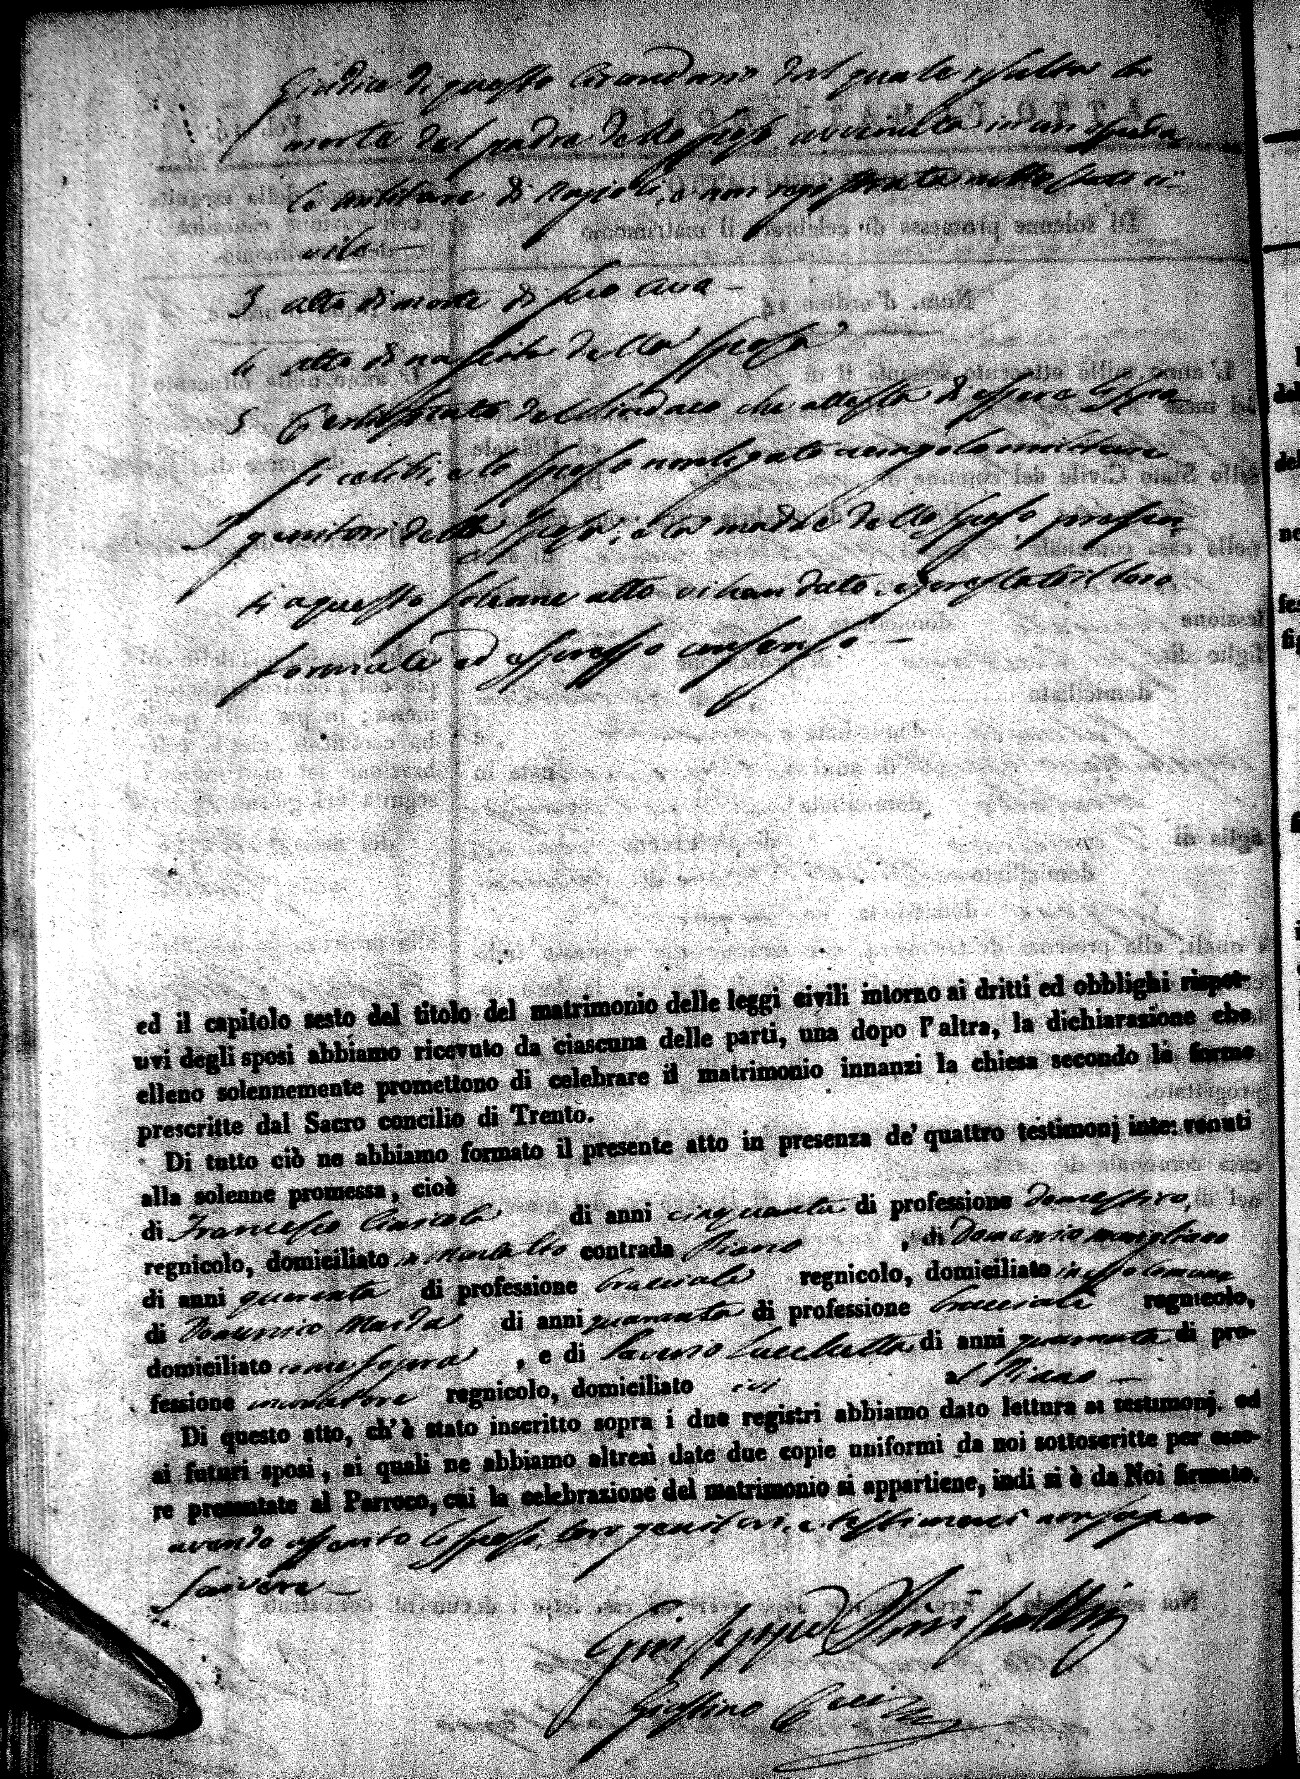 Giudice di questo Circondario dal quale risulta la
morte del padre dello sposo avvenuta in un speda
le militare di Napoli, e non registrata nello stato ci-
vile —
3 atto di morte di suo ava —
4 atto di nascita della sposa
5 Certificato del Sindaco che attesta di essere
celibi, e lo sposo non ligato a vincolo militare
I genitori della sposa, e la madre dello sposo presen
ti a questo solenne atto vi han dato, e prestato il loro
formale ed espresso consenso —
ed il capitolo sesto del titolo del matrimonio delle leggi civili intorno ai dritti ed obblighi rispet-
tivi degli sposi abbiamo ricevuto da ciascuna delle parti, una dopo l'altra, la dichiarazione che
elleno solennemente promettono di celebrare il matrimonio innanzi la chiesa secondo le forme
prescritte dal Sacro concilio di Trento.
Di tutto ciò ne abbiamo formato il presente atto in presenza de' quattro testimonj intervenuti
alla solenne promessa, cioè
di Francesco di anni cinquanta di professione
regnicolo, domiciliato in contrada Piano, di Domenico
di anni quaranta di professione bracciale regnicolo, domiciliato in
di Domenico di anni quaranta di professione bracciale regnicolo,
domiciliato come sopra, e di Saverio di anni quaranta di pro-
fessione regnicolo, domiciliato ivi al Piano —
Di questo atto, ch'è stato inscritto sopra i due registri abbiamo dato lettura ai testimonj, ed
ai futuri sposi, ai quali ne abbiamo altresì date due copie uniformi da noi sottoscritte per esse-
re presentate al Parroco, cui la celebrazione del matrimonio si appartiene, indi si è da Noi firmato.
avendo asserito li sposi, loro genitori, e testimoni non sapere
scrivere —
Giuseppe
Giustino